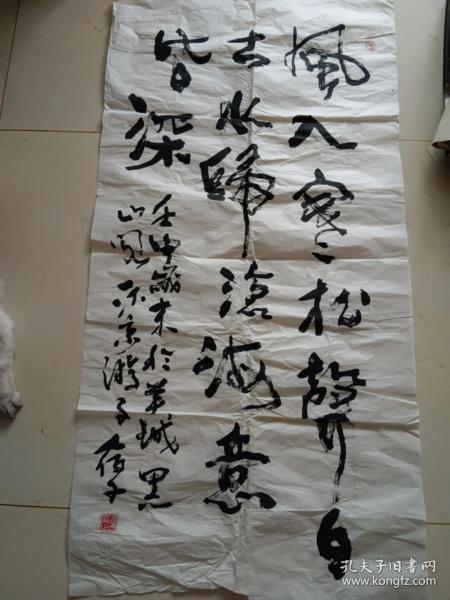 風入寒松聲自
古水歸滄海意
皆深
壬申歲末於羊城黑
山 京游子
孔夫子旧书网
www.kongfz.com